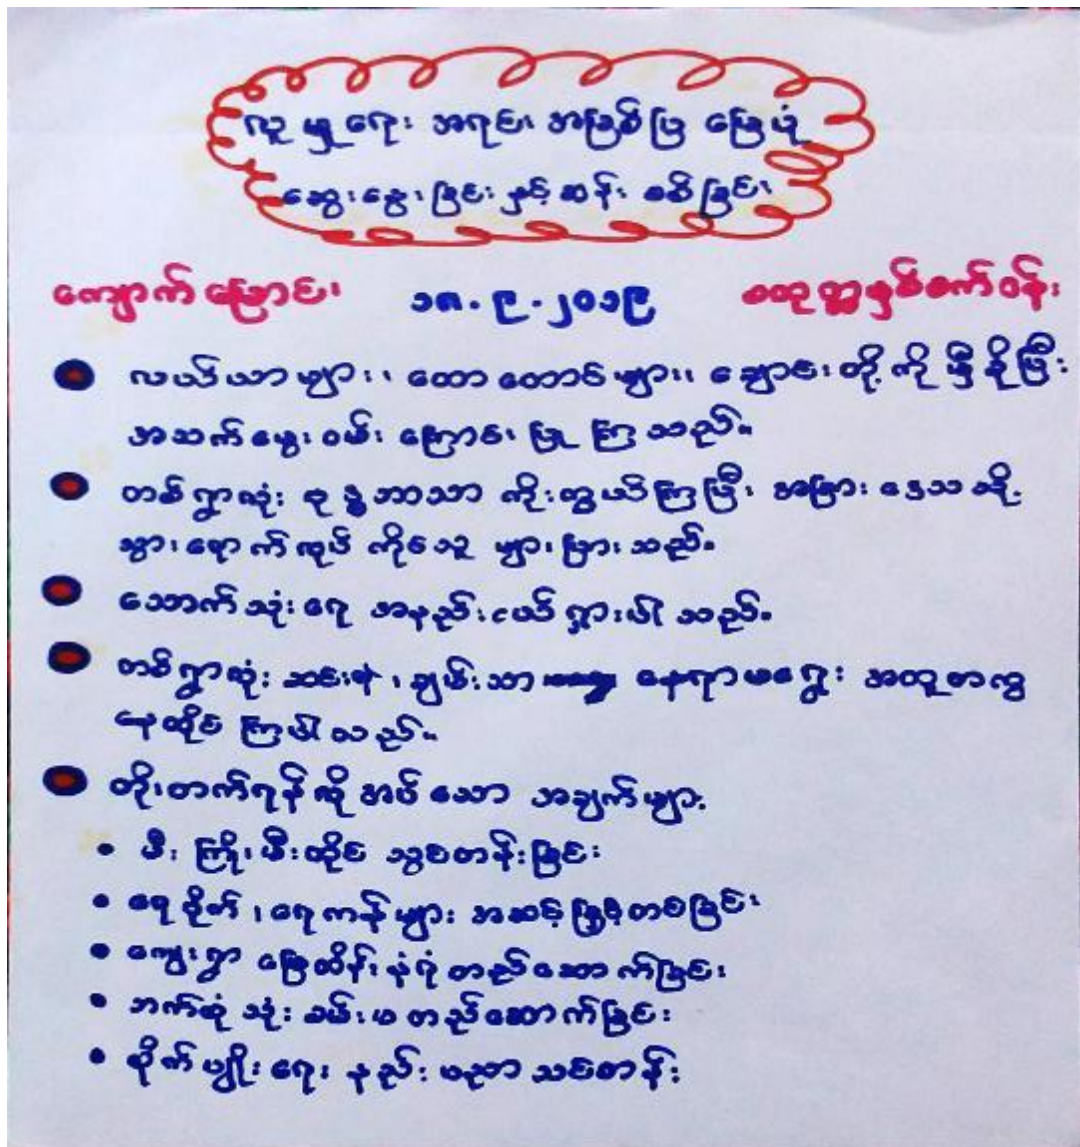 လူမှုရေး အရင်းအမြစ်ပြ မြေပုံ
ဆွေးနွေးခြင်း နှင့် ဆန်းစစ်ခြင်း
ကျောက်မြောင်း ၁၈.၉.၂၀၁၉ စတုတ္ထနှစ်စက်ဝန်း
လယ်ယာများ၊ တောတောင်များ၊ ချောင်းတို့ကို မှီခိုပြီး
အသက်မွေးဝမ်းကြောင်းပြုကြသည်။
တစ်ရွာလုံး ဗုဒ္ဓဘာသာ ကိုးကွယ်ကြပြီး အခြားဒေသသို့
သွားရောက်လုပ်ကိုင်သူ များပြားသည်။
သောက်သုံးရေ အနည်းငယ်ရှားပါသည်။
တစ်ရွာလုံး ဆင်းရဲ၊ ချမ်းသာ နေရာမရွေး အတူတကွ
နေထိုင်ကြပါသည်။
တိုးတက်ရန်လိုအပ်သော အချက်များ
မီးကြိုး၊ မီးတိုင် သွယ်တန်းခြင်း
ရေစိုက်၊ ရေကန်များ အဆင့်မြှင့်တင်ခြင်း
ကျေးရွာ မြေထိန်းနံရံ တည်ဆောက်ခြင်း
ဘက်စုံသုံးခမ်းမ တည်ဆောက်ခြင်း
စိုက်ပျိုးရေး နည်းပညာ သင်တန်း